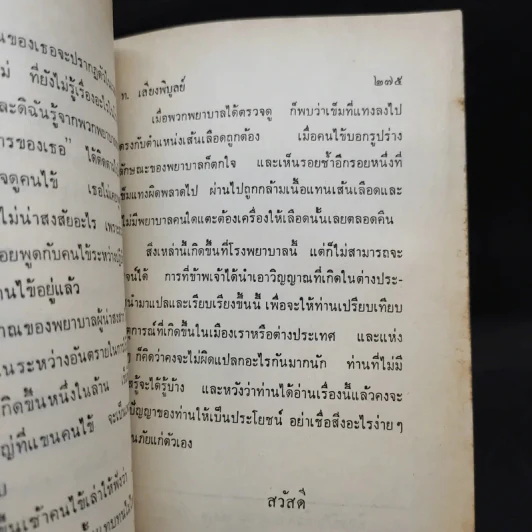 นของเธอจะปรากฏตัว
ม่ ที่ยังไม่รู้เรื่องอะไร
ละดิฉันรู้จากพวกพยาบาล
ารของเธอ” ได้ติดตาม
จดูคนไข้ เธอไม่เคย
ไม่น่าสงสัยอะไร เพราะ
อยพูดกับคนไข้ระหว่าง
นไข้อยู่แล้ว
าณของพยาบาลผู้น่าสงสาร
นในระหว่างอันตราย
กิดขึ้นหนึ่งในล้าน
ญ่ที่แขนคนไข้ จะเป็น
ขึ้นเช้าคนไข้เล่าให้ฟังว่า
ท. เลียงพิบูลย์ ๒๗๕
เมื่อพวกพยาบาลได้ตรวจดู ก็พบว่าเข็มที่แทงลงไป
ตรงกับตำแหน่งเส้นเลือดถูกต้อง เมื่อคนไข้บอกรูปร่าง
ลักษณะของพยาบาลก็ตกใจ และเห็นรอยช้ำอีกรอยหนึ่งที่
เข็มแทงผิดพลาดไป ผ่านไปถูกกล้ามเนื้อแทนเส้นเลือดและ
ไม่มีพยาบาลคนใดแตะต้องเครื่องให้เลือดนั้นเลยตลอดคืน
สิ่งเหล่านี้เกิดขึ้นที่โรงพยาบาลนี้ แต่ก็ไม่สามารถจะ
จน์ได้ การที่ข้าพเจ้าได้นำเอาวิญญาณที่เกิดในต่างประ-
นำมาแปลและเรียบเรียงขึ้นนี้ เพื่อจะให้ท่านเปรียบเทียบ
ตุการณ์ที่เกิดขึ้นในเมืองเราหรือต่างประเทศ และแห่ง
ๆ ก็คิดว่าคงจะไม่ผิดแปลกอะไรกันมากนัก ท่านที่ไม่มี
รู้จะได้รู้บ้าง และหวังว่าท่านได้อ่านเรื่องนี้แล้วคงจะ
ปัญญาของท่านให้เป็นประโยชน์ อย่าเชื่อสิ่งอะไรง่ายๆ
นภัยแก่ตัวเอง
สวัสดี